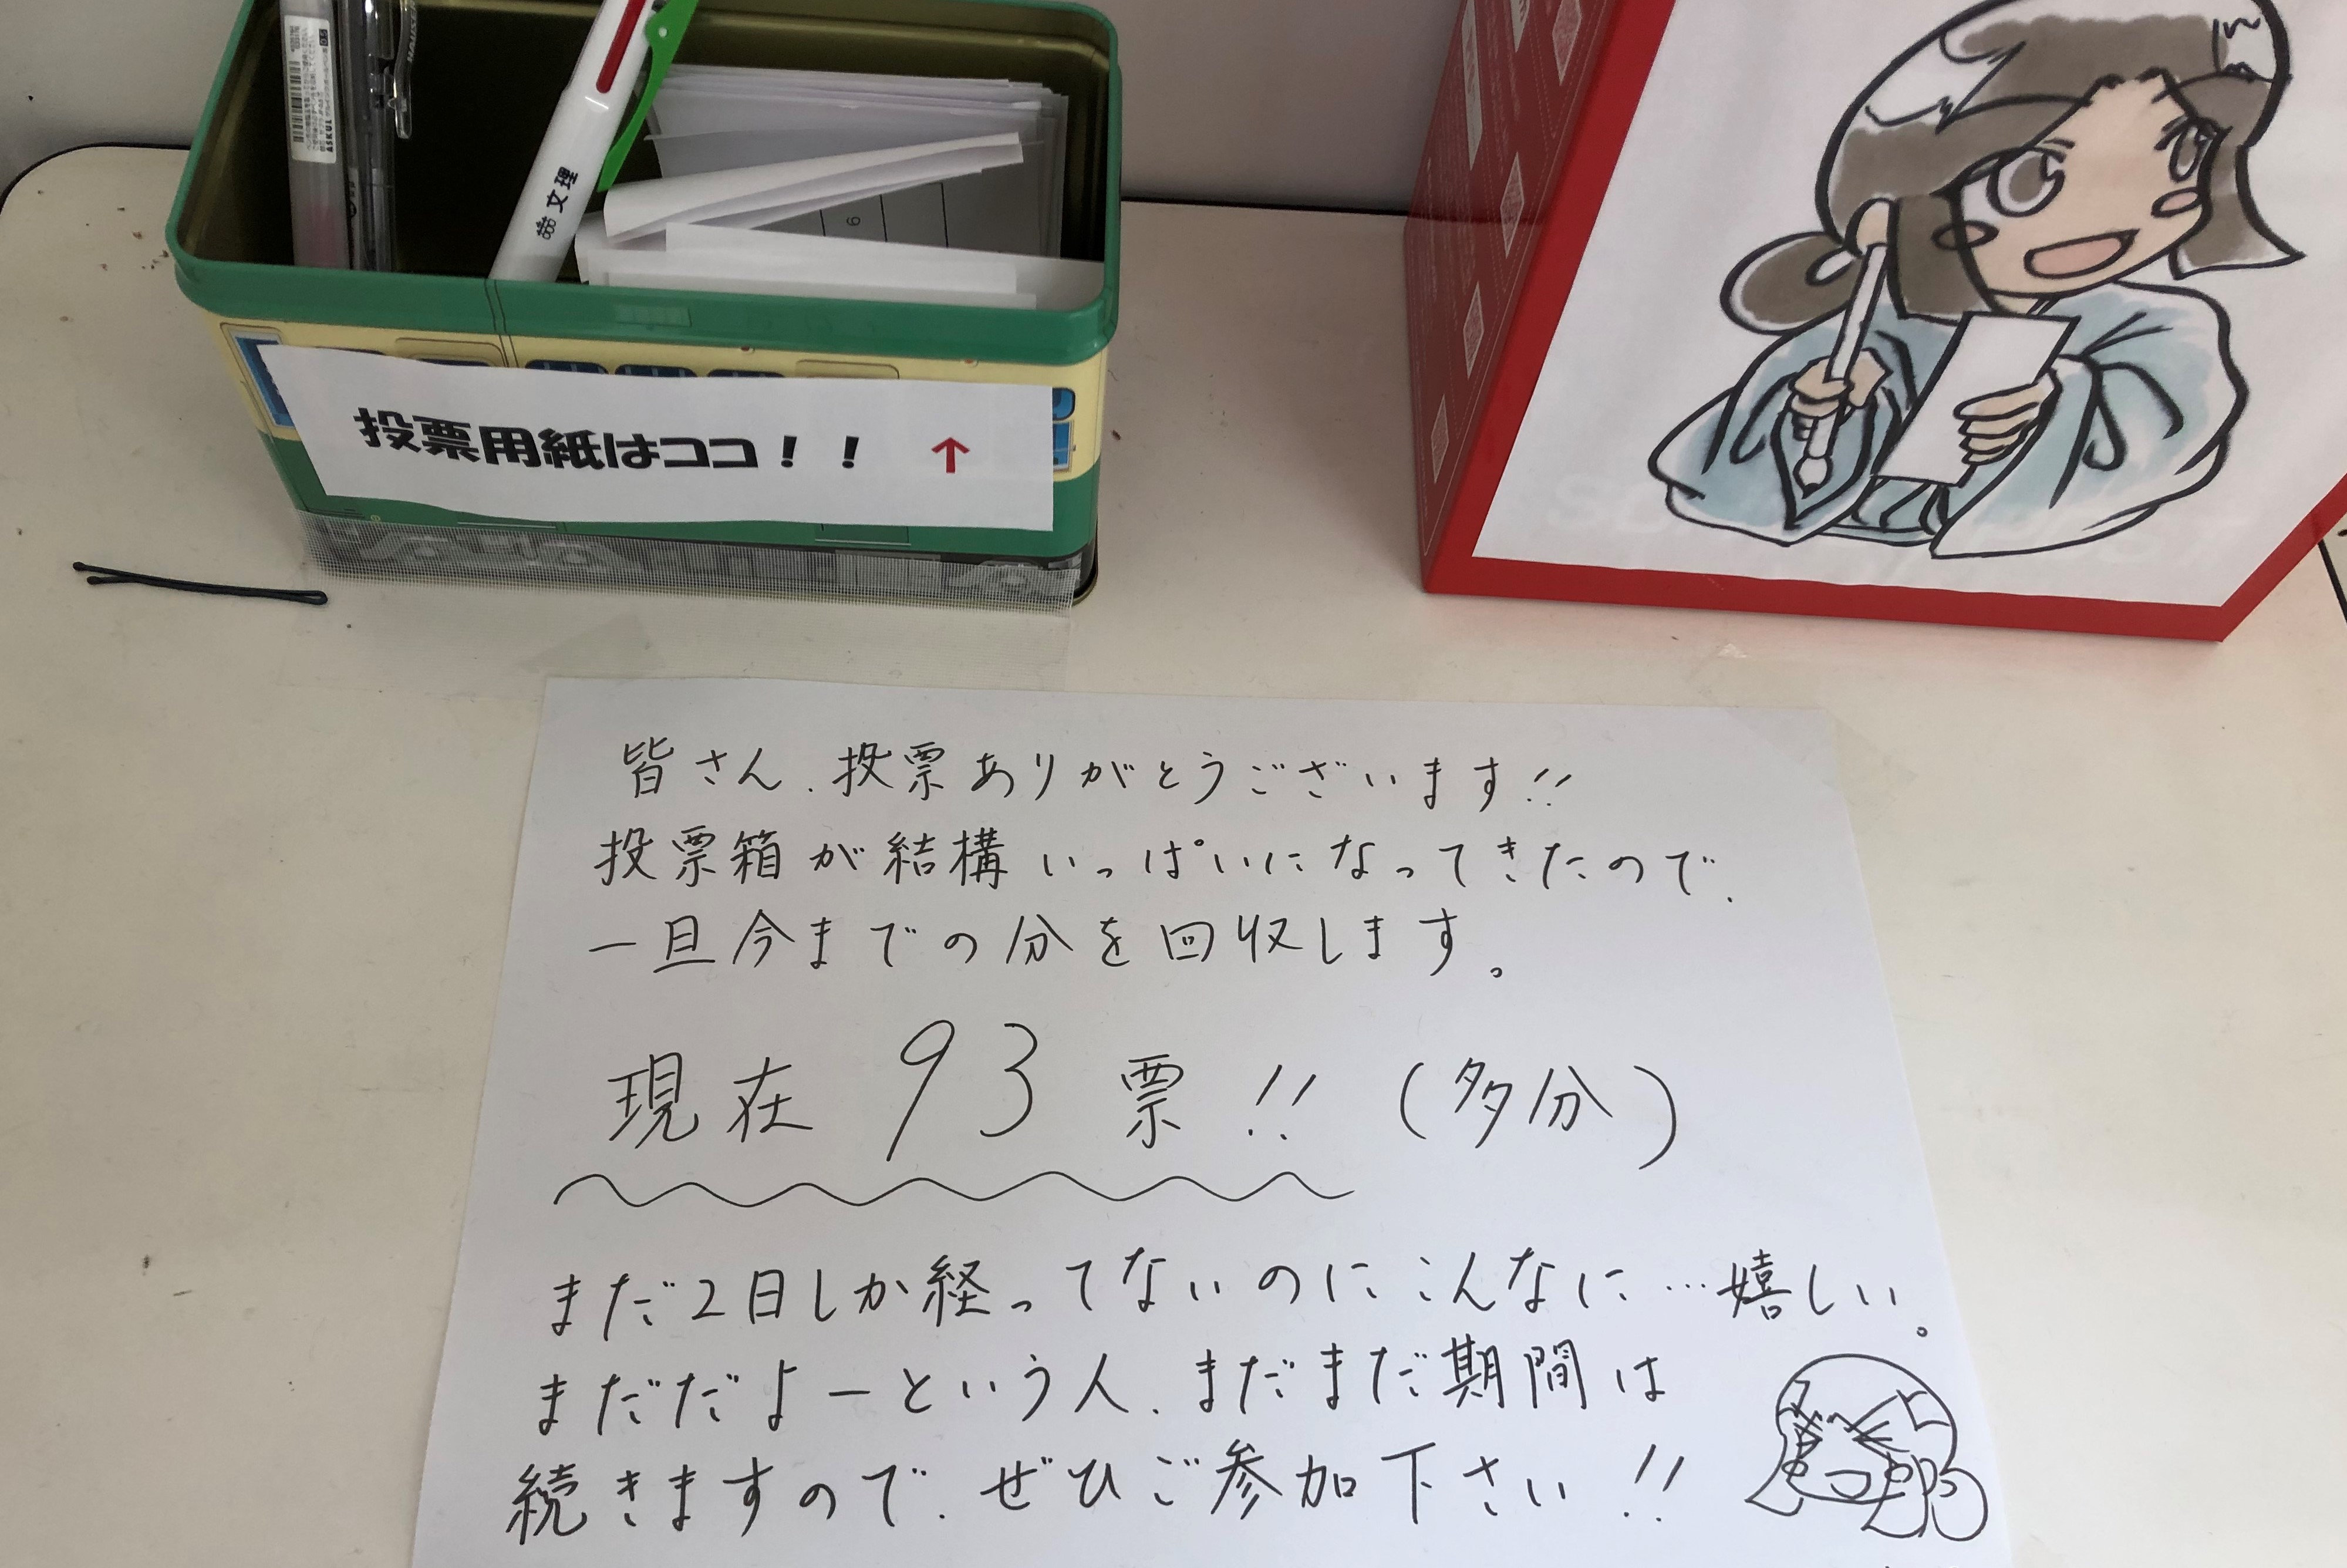 文理
ASKUL
6
投票用紙はココ！！ ↑
皆さん、投票ありがとうございます!!
投票箱が結構いっぱいになってきたので、
一旦今までの分を回収します。
現在 93 票 !! (多分)
まだ2日しか経ってないのにこんなに…嬉しい。
まだだよーという人、まだまだ期間は
続きますので、ぜひご参加下さい!!